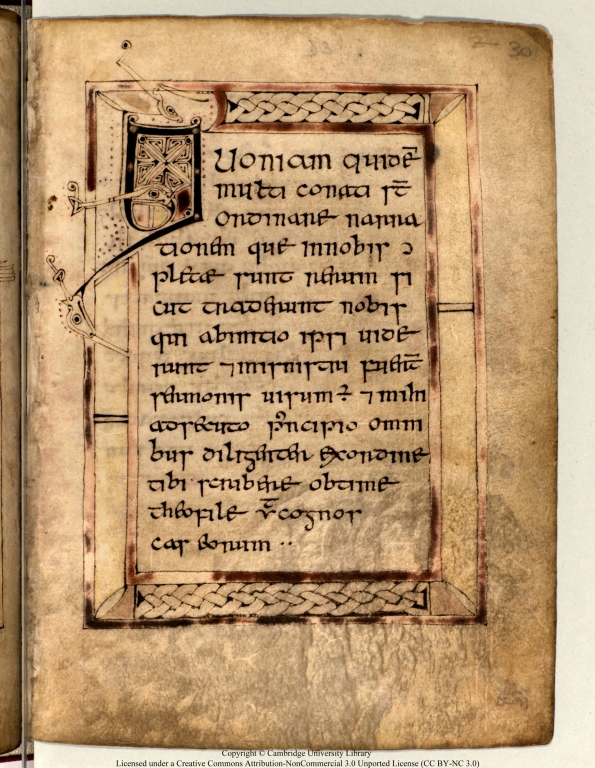 30
Quoniam quidē
multi conati st̄
ordinare narra
tionem que innobis ɔ
pletæ sunt rerum si
cut traderunt nobis
qui abinitio ipsi uide
runt ⁊ministri fuer̄t
sermonis uisum ⁊ mihi
adsecuto principio omni
bus diligenter exordine
tibi scribere obtime
theofile v̄cognos
cas eorum ··
Copyright © Cambridge University Library
Licensed under a Creative Commons Attribution-NonCommercial 3.0 Unported License (CC BY-NC 3.0)